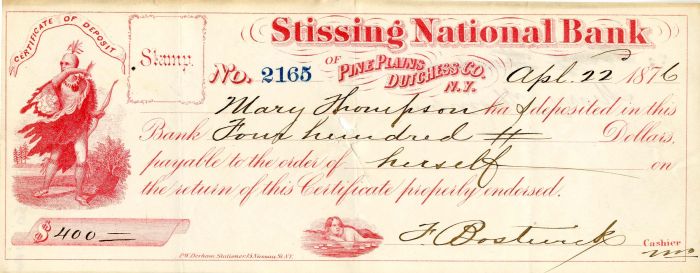 CERTIFICATE OF DEPOSIT
Stamp.
Stissing National Bank
OF PINE PLAINS
DUTCHESS CO.
N.Y.
No. 2165
Apl. 22 1876
Mary Thompson has deposited in this
Bank Four hundred Dollars,
payable to the order of herself on
the return of this Certificate properly endorsed.
$ 400 =
F. Bostwick
Cashier
P.W. Derham Stationer 13 Nassau St. N.Y.